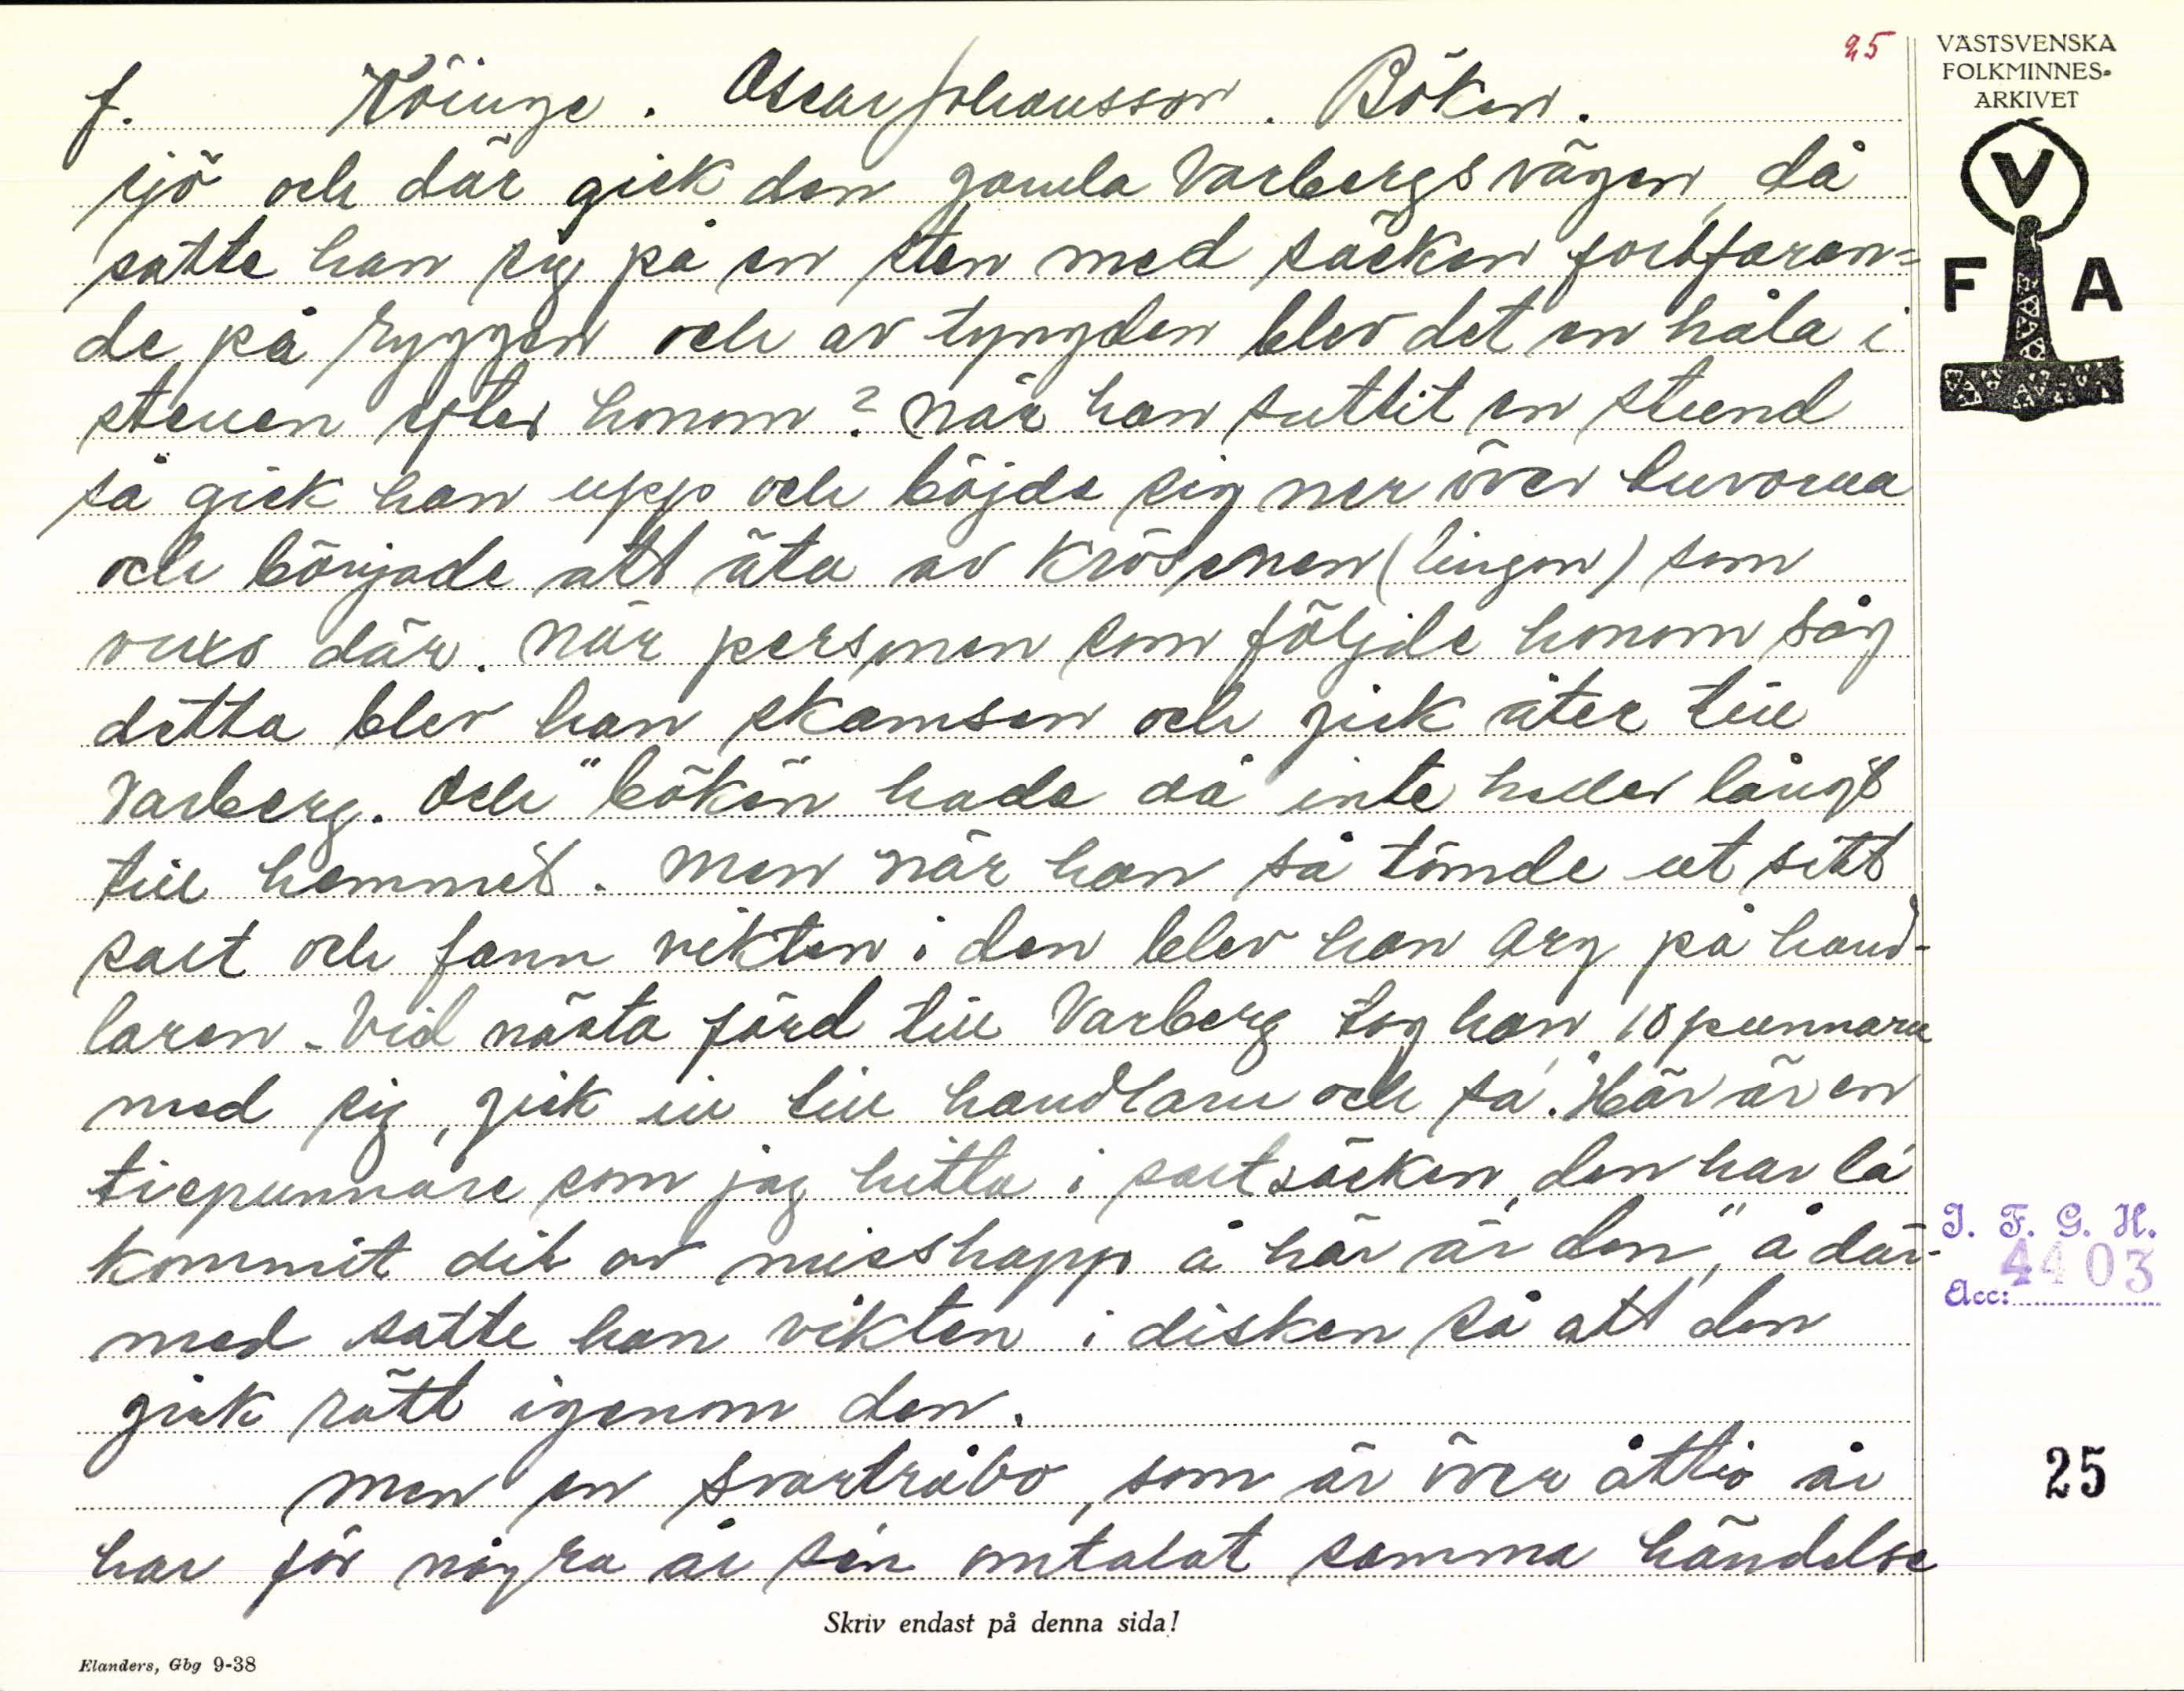 25
VÄSTSVENSKA
FOLKMINNES-
ARKIVET
V
F A
f. Köinge. Oscar Johansson. Böken.
sjö och där gick den gamla Varbergsvägen, då
satte han sig på en sten med säcken fortfaran=
de på ryggen och av tyngden blev det en håla i
stenen efter honom? när han suttit en stund
så gick han upp och böjde sig ner över tuvorna
och började att äta av krösenen (lingon) som
växo där. När personen som följde honom såg
detta blev han skamsen och gick åter till
Varberg. Och "böken" hade då inte heller långt
till hemmet. Men när han så tömde ut sitt
salt och fann vikten i den blev han arg på hand-
laren. Vid nästa färd till Varberg tog han 10 punnarn
med sig, gick in till handlarn och sa: "Här är en
tiepunnare som jag hitta i saltsäcken, den har la
kommit dit av misshapp å här är den", å där-
med satte han vikten i disken så att den
gick rätt igenom den.
Men en svartråbo, som är över åttio år
har för några år sen omtalat samma händelse
I. F. G. H.
Acc: 4403
25
Skriv endast på denna sida!
Elanders, Gbg 9-38